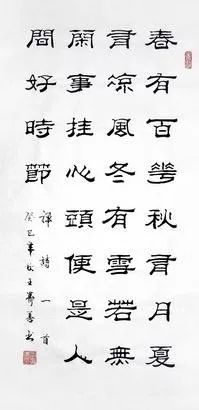 春有百華秋有月夏
有涼風冬有雪若無
閑事挂心頭便是人
間好時節
禪詩一首
癸巳年 王壽善書